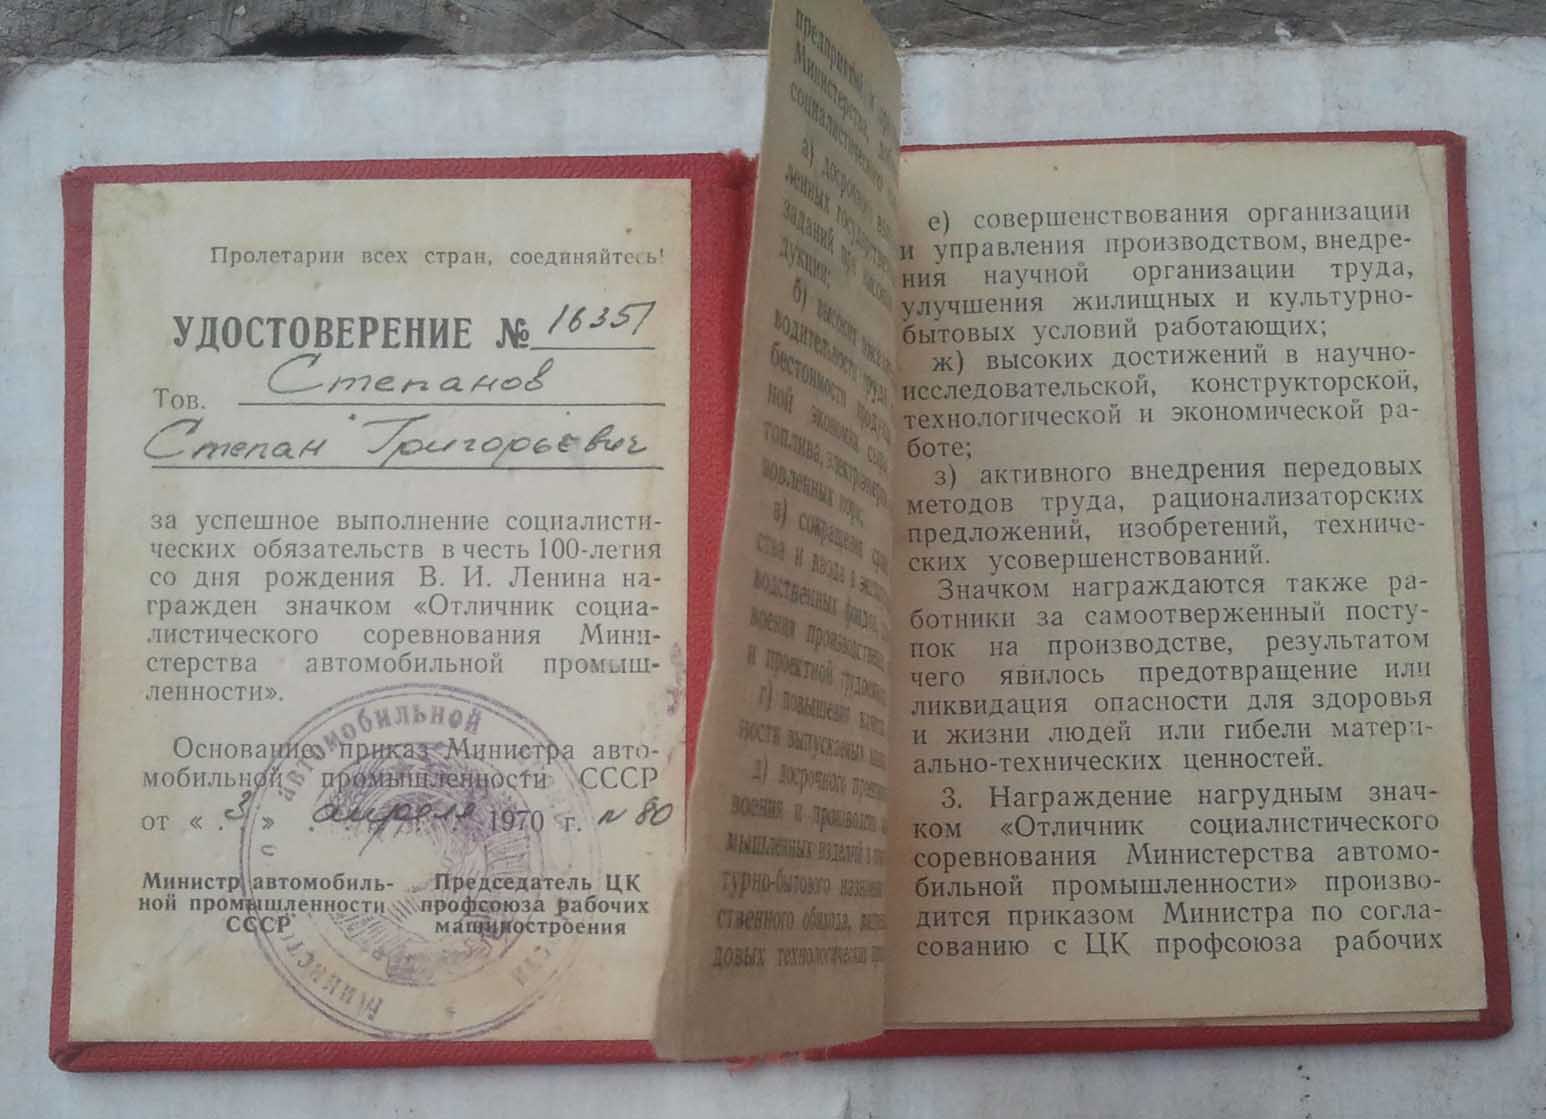 Пролетарии всех стран, соединяйтесь!
УДОСТОВЕРЕНИЕ № 16351
Тов. Степанов
Степан Григорьевич
за успешное выполнение социалисти-
ческих обязательств в честь 100-летия
со дня рождения В. И. Ленина на-
гражден значком «Отличник социа-
листического соревнования Мини-
стерства автомобильной промыш-
ленности».
Основание: приказ Министра авто-
мобильной промышленности СССР
от «3» апреля 1970 г. № 80
Министр автомобиль-
ной промышленности
СССР
Председатель ЦК
профсоюза рабочих
машиностроения
автомобильной
предприятий и
Министерства,
социалистического
а) досрочного
ленных
заданий при
дукции;
б) высоких
водительности труда,
бестоимости
ной экономии сырья,
топлива,
новленных норм;
в) сокращения
ства и ввода в
водственных фондов,
воения производственных
и проектной
г) повышения
ности выпускаемых
д) досрочного
воения и производства
мышленных изделий и
турно-бытового
ственного обихода,
довых технологических
е) совершенствования организации
и управления производством, внедре-
ния научной организации труда,
улучшения жилищных и культурно-
бытовых условий работающих;
ж) высоких достижений в научно-
исследовательской, конструкторской,
технологической и экономической ра-
боте;
з) активного внедрения передовых
методов труда, рационализаторских
предложений, изобретений, техниче-
ских усовершенствований.
Значком награждаются также ра-
ботники за самоотверженный посту-
пок на производстве, результатом
чего явилось предотвращение или
ликвидация опасности для здоровья
и жизни людей или гибели матери-
ально-технических ценностей.
3. Награждение нагрудным знач-
ком «Отличник социалистического
соревнования Министерства автомо-
бильной промышленности» произво-
дится приказом Министра по согла-
сованию с ЦК профсоюза рабочих